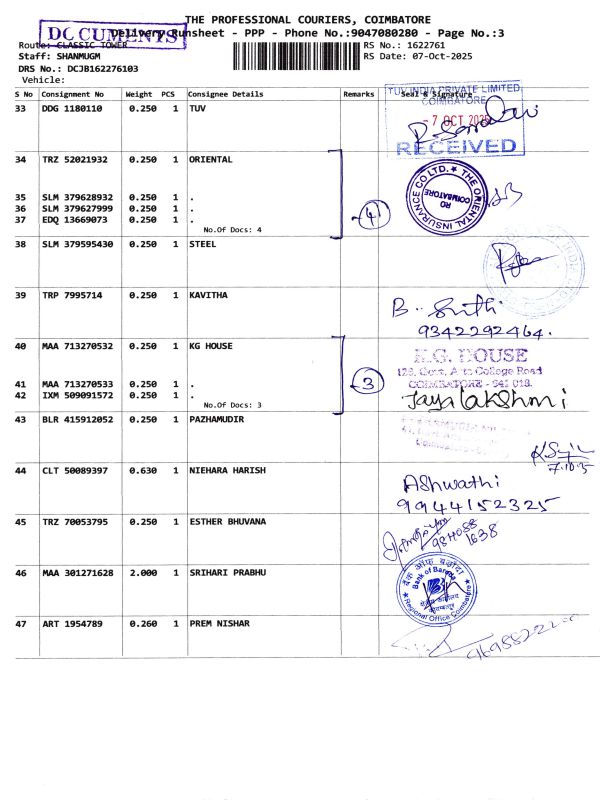 THE PROFESSIONAL COURIERS, COIMBATORE
DOCUMENTS
Delivery Runsheet - PPP - Phone No.:9047080280 - Page No.:3
Route: CLASSIC TOWER RS No.: 1622761
Staff: SHANMUGM RS Date: 07-Oct-2025
DRS No.: DCJB162276103
Vehicle:
S No Consignment No Weight PCS Consignee Details Remarks Seal & Signature
33 DDG 1180110 0.250 1 TUV
TUV INDIA PRIVATE LIMITED
COIMBATORE
- 7 OCT 2025
RECEIVED
34 TRZ 52021932 0.250 1 ORIENTAL
35 SLM 379628932 0.250 1 .
36 SLM 379627999 0.250 1 .
37 EDQ 13669073 0.250 1 .
No.Of Docs: 4
4
THE ORIENTAL INSURANCE CO LTD.
RO
COIMBATORE
38 SLM 379595430 0.250 1 STEEL
39 TRP 7995714 0.250 1 KAVITHA
9342292464.
40 MAA 713270532 0.250 1 KG HOUSE
41 MAA 713270533 0.250 1 .
42 IXM 509091572 0.250 1 .
No.Of Docs: 3
3
K.G. HOUSE
129, Govt. Arts College Road
COIMBATORE - 641 018.
Jayalakshmi
43 BLR 415912052 0.250 1 PAZHAMUDIR
44 CLT 50089397 0.630 1 NIEHARA HARISH
Ashwathi
9944152325
45 TRZ 70053795 0.250 1 ESTHER BHUVANA
46 MAA 301271628 2.000 1 SRIHARI PRABHU
बैंक ऑफ बड़ौदा
Bank of Baroda
Regional Office Coimbatore
47 ART 1954789 0.260 1 PREM NISHAR